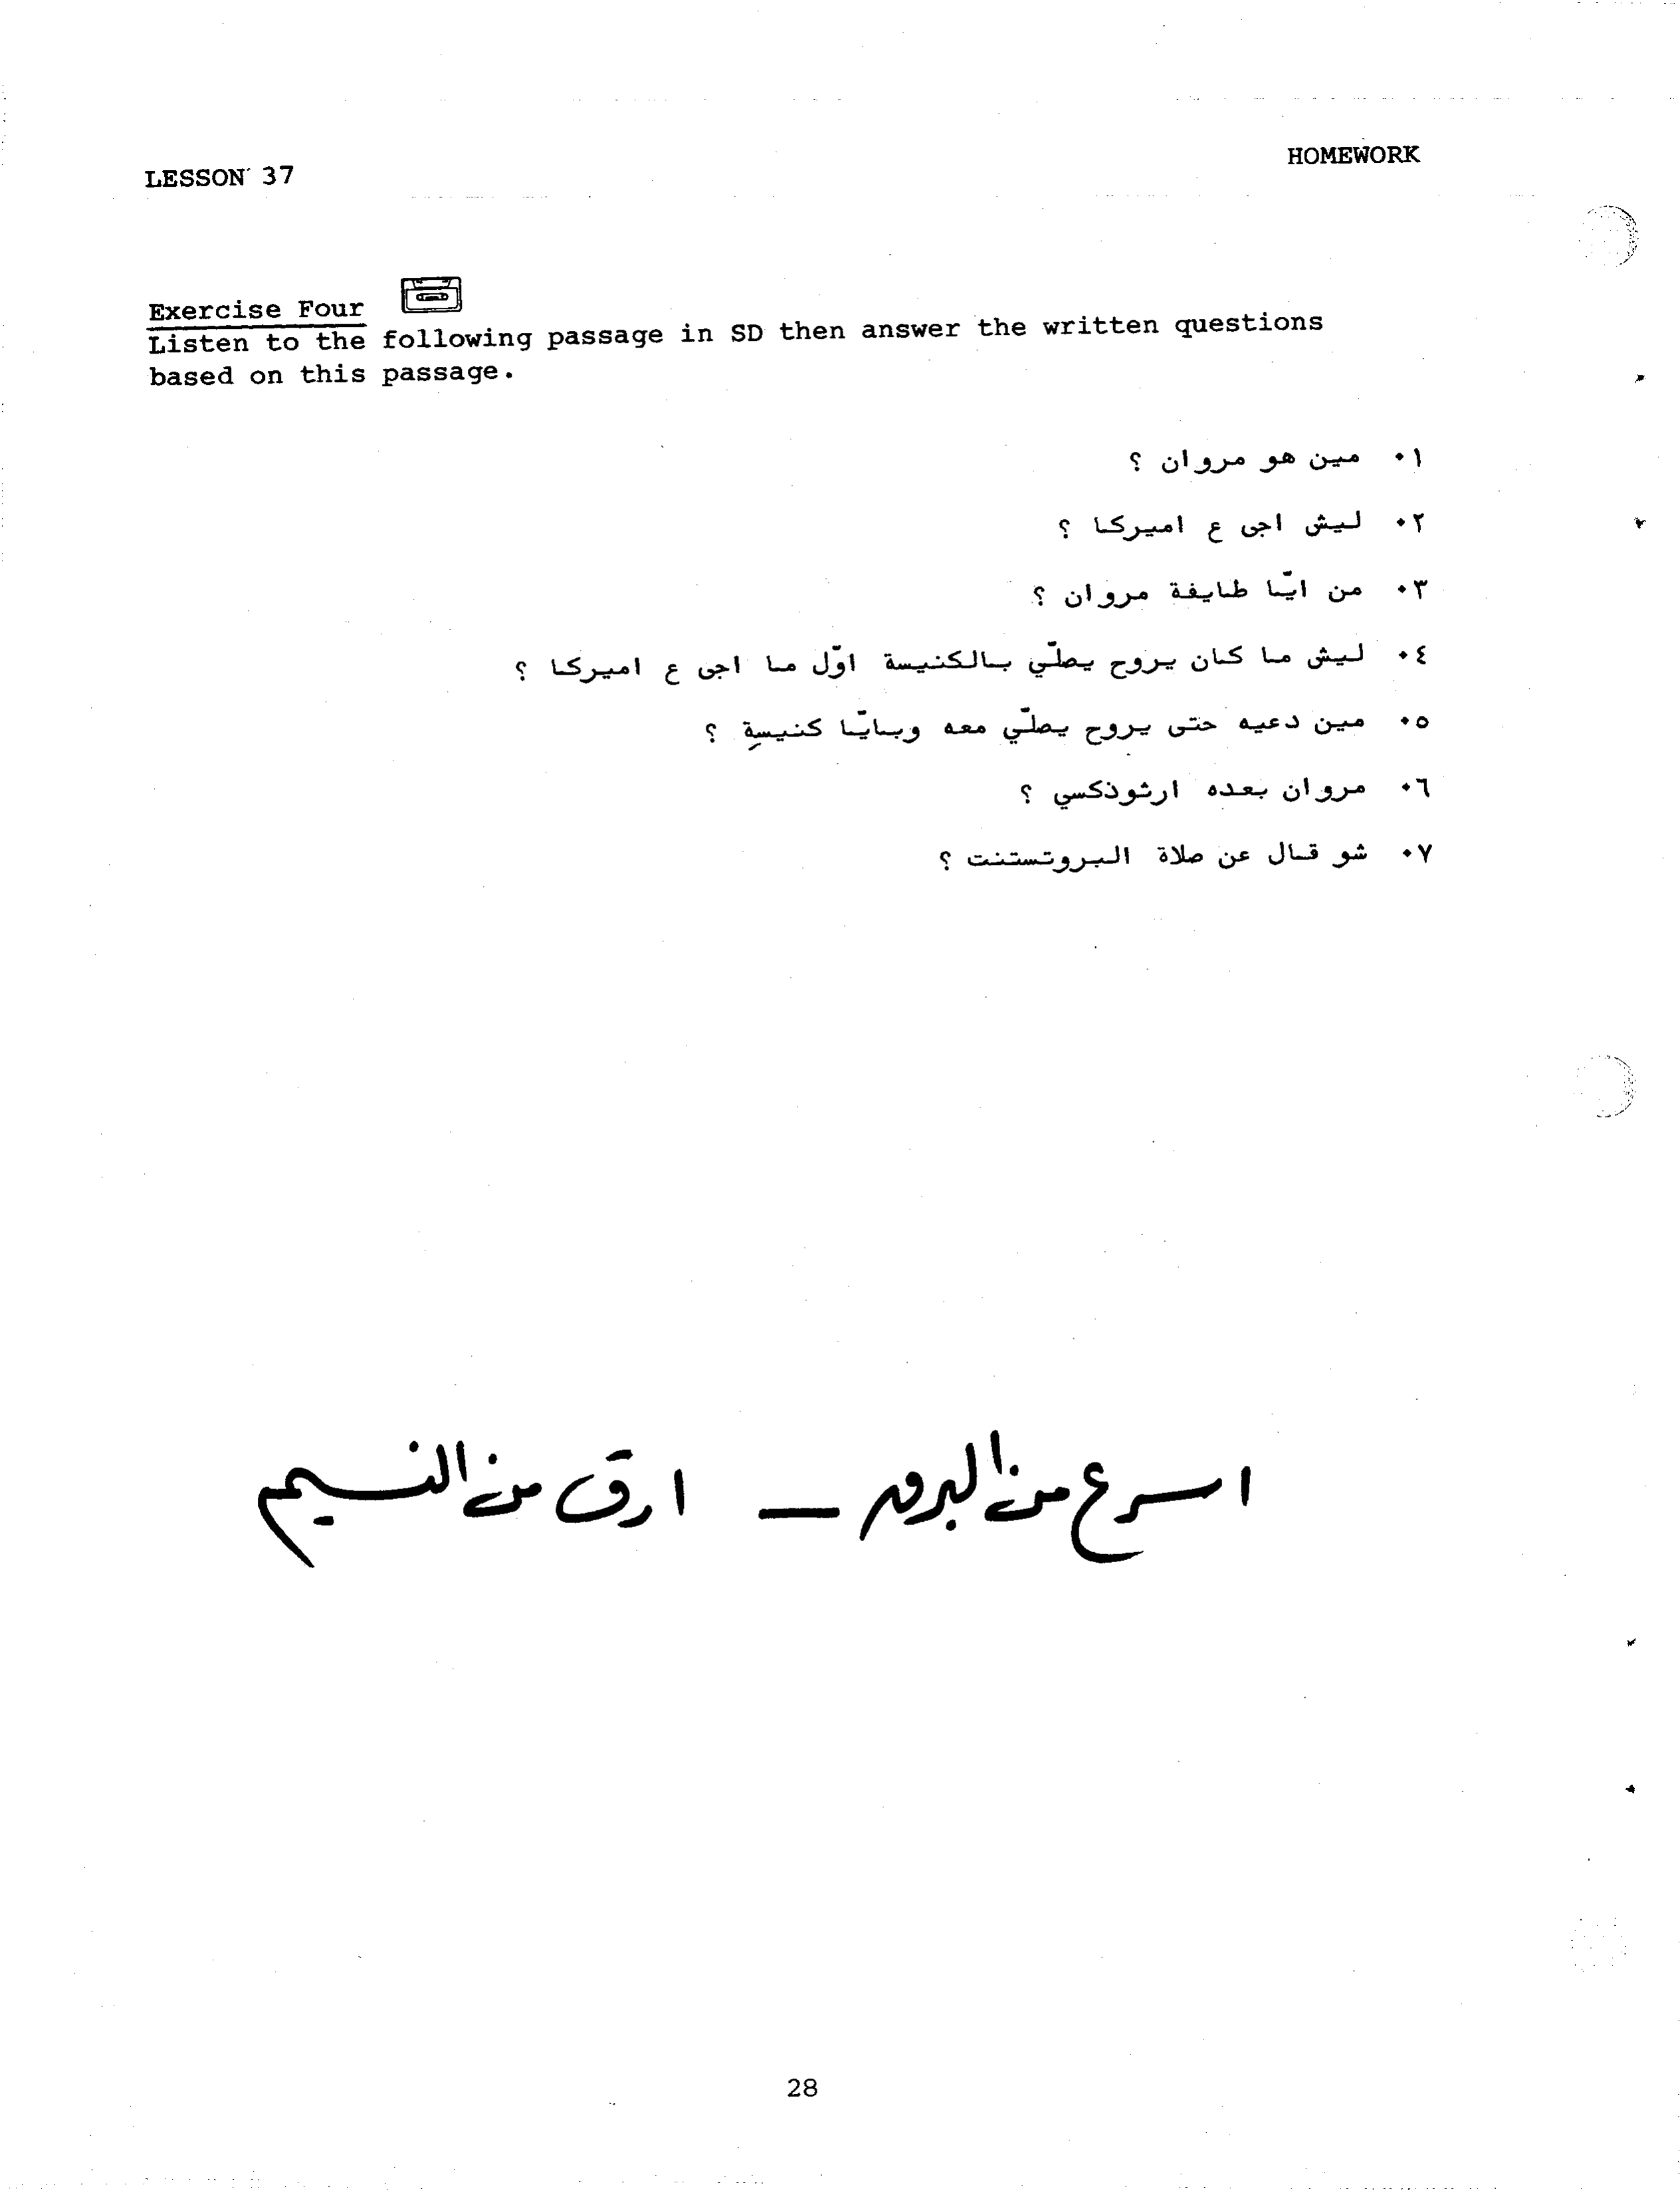 HOMEWORK
LESSON 37
Exercise Four
Listen to the following passage in SD then answer the written questions
based on this passage.
١. مين هو مروان ؟
٢. ليش اجى ع اميركا ؟
٣. من ايّا طايفة مروان ؟
٤. ليش ما كان يروح يصلّي بالكنيسة اوّل ما اجى ع اميركا ؟
٥. مين دعيه حتى يروح يصلّي معه وبايّا كنيسة ؟
٦. مروان بعده ارثوذكسي ؟
٧. شو قال عن صلاة البروتستنت ؟
اسرع من البرق — ارق من النسيم
28